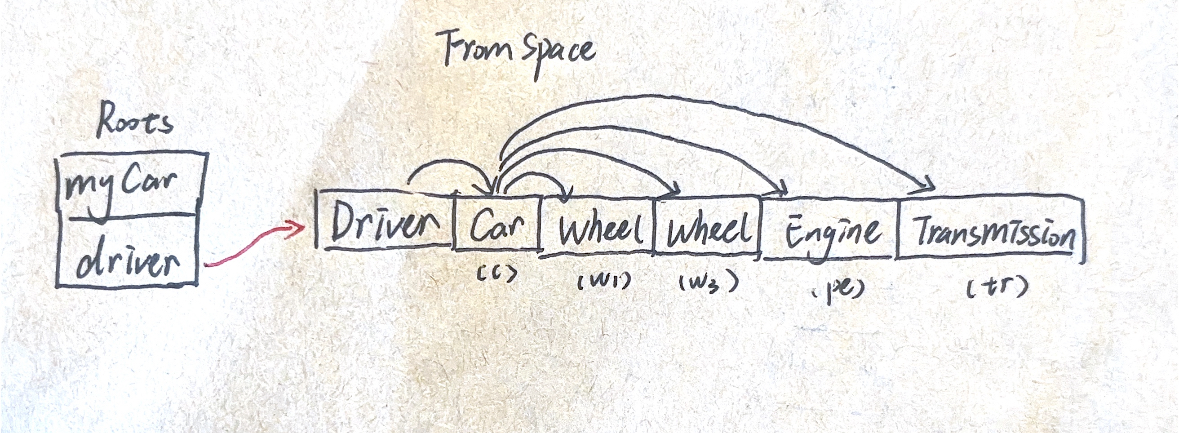 From Space
Roots
myCar
driver
Driver Car Wheel Wheel Engine Transmission
(c) (w1) (w3) (pe) (tr)